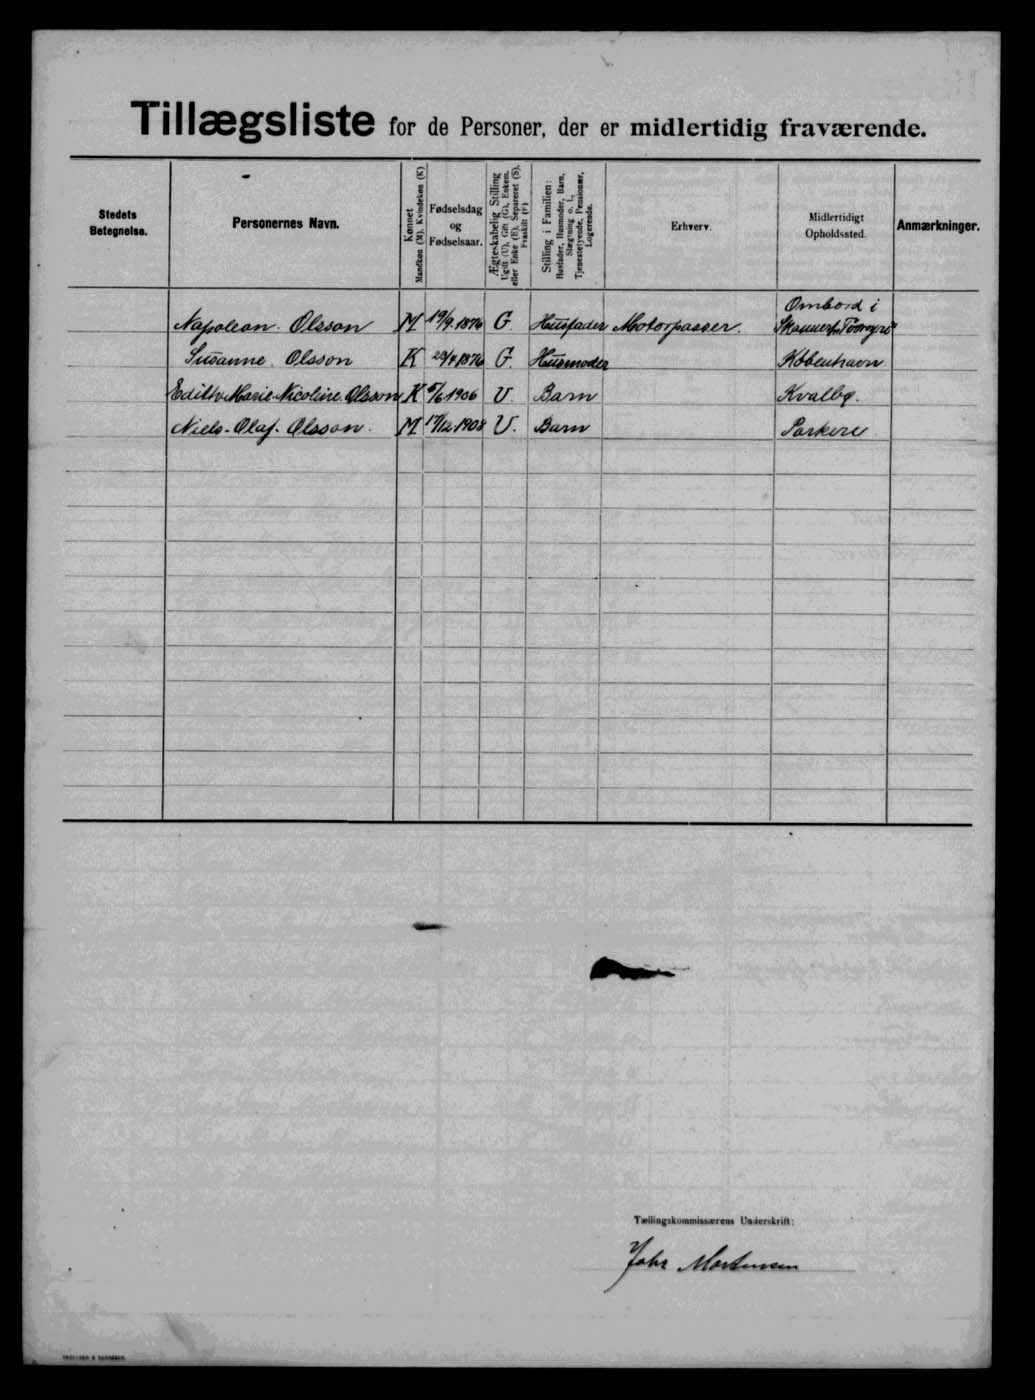 Tillægsliste for de Personer, der er midlertidig fraværende.
Stedets Betegnelse.
Personernes Navn.
Kønnet Mandkøn (M). Kvindekøn (K)
Fødselsdag og Fødselsaar.
Ægteskabelig Stilling Ugift (U), Gift (G), Enkem. eller Enke (E), Separeret (S), Fraskilt (F)
Stilling i Familien: Husfader, Husmoder, Barn, Slægtning o. l., Tjenestetyende, Pensionær, Logerende.
Erhverv.
Midlertidigt Opholdssted.
Anmærkninger.
Ombord i
Napolean Olsson M 19/9 1876 G. Husfader Motorpasser.
Susanne Olsson K 1876 G. Husmoder København
Edith Marie Nicoline Olsson K 1906 U. Barn Kvalbø.
Niels-Olaf. Olsson. M 17/12 1908 U. Barn Porkere
Tællingskommissærens Underskrift:
Johs Mortensen